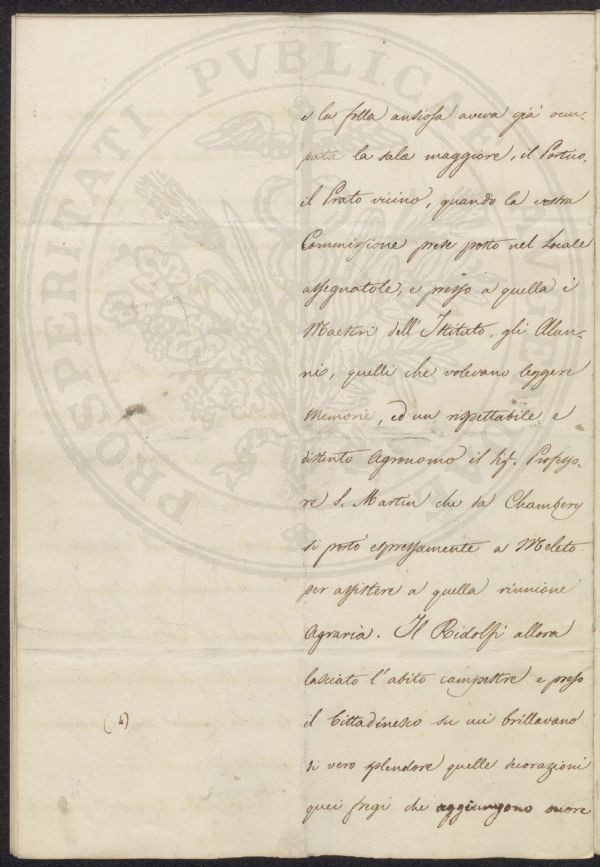 e la folla ansiosa aveva già occu-
pata la sala maggiore, il Portico,
il Prato vicino, quando la vostra
Commissione prese posto nel Locale
assegnatole, e presso a quella i
Maestri dell'Istituto, gli Alun-
ni, quelli che volevano leggere
Memorie, ed un rispettabile e
distinto Agronomo il Sig.r Professo-
re S. Martin che da Chambery
si portò espressamente a Meleto
per assistere a quella riunione
Agraria. Il Ridolfi allora
lasciato l'abito campestre e preso
il Cittadinesco su cui brillavano
di vero splendore quelle decorazioni
quei fregi che aggiungono onore
(4)
PROSPERITATI PVBLICAE